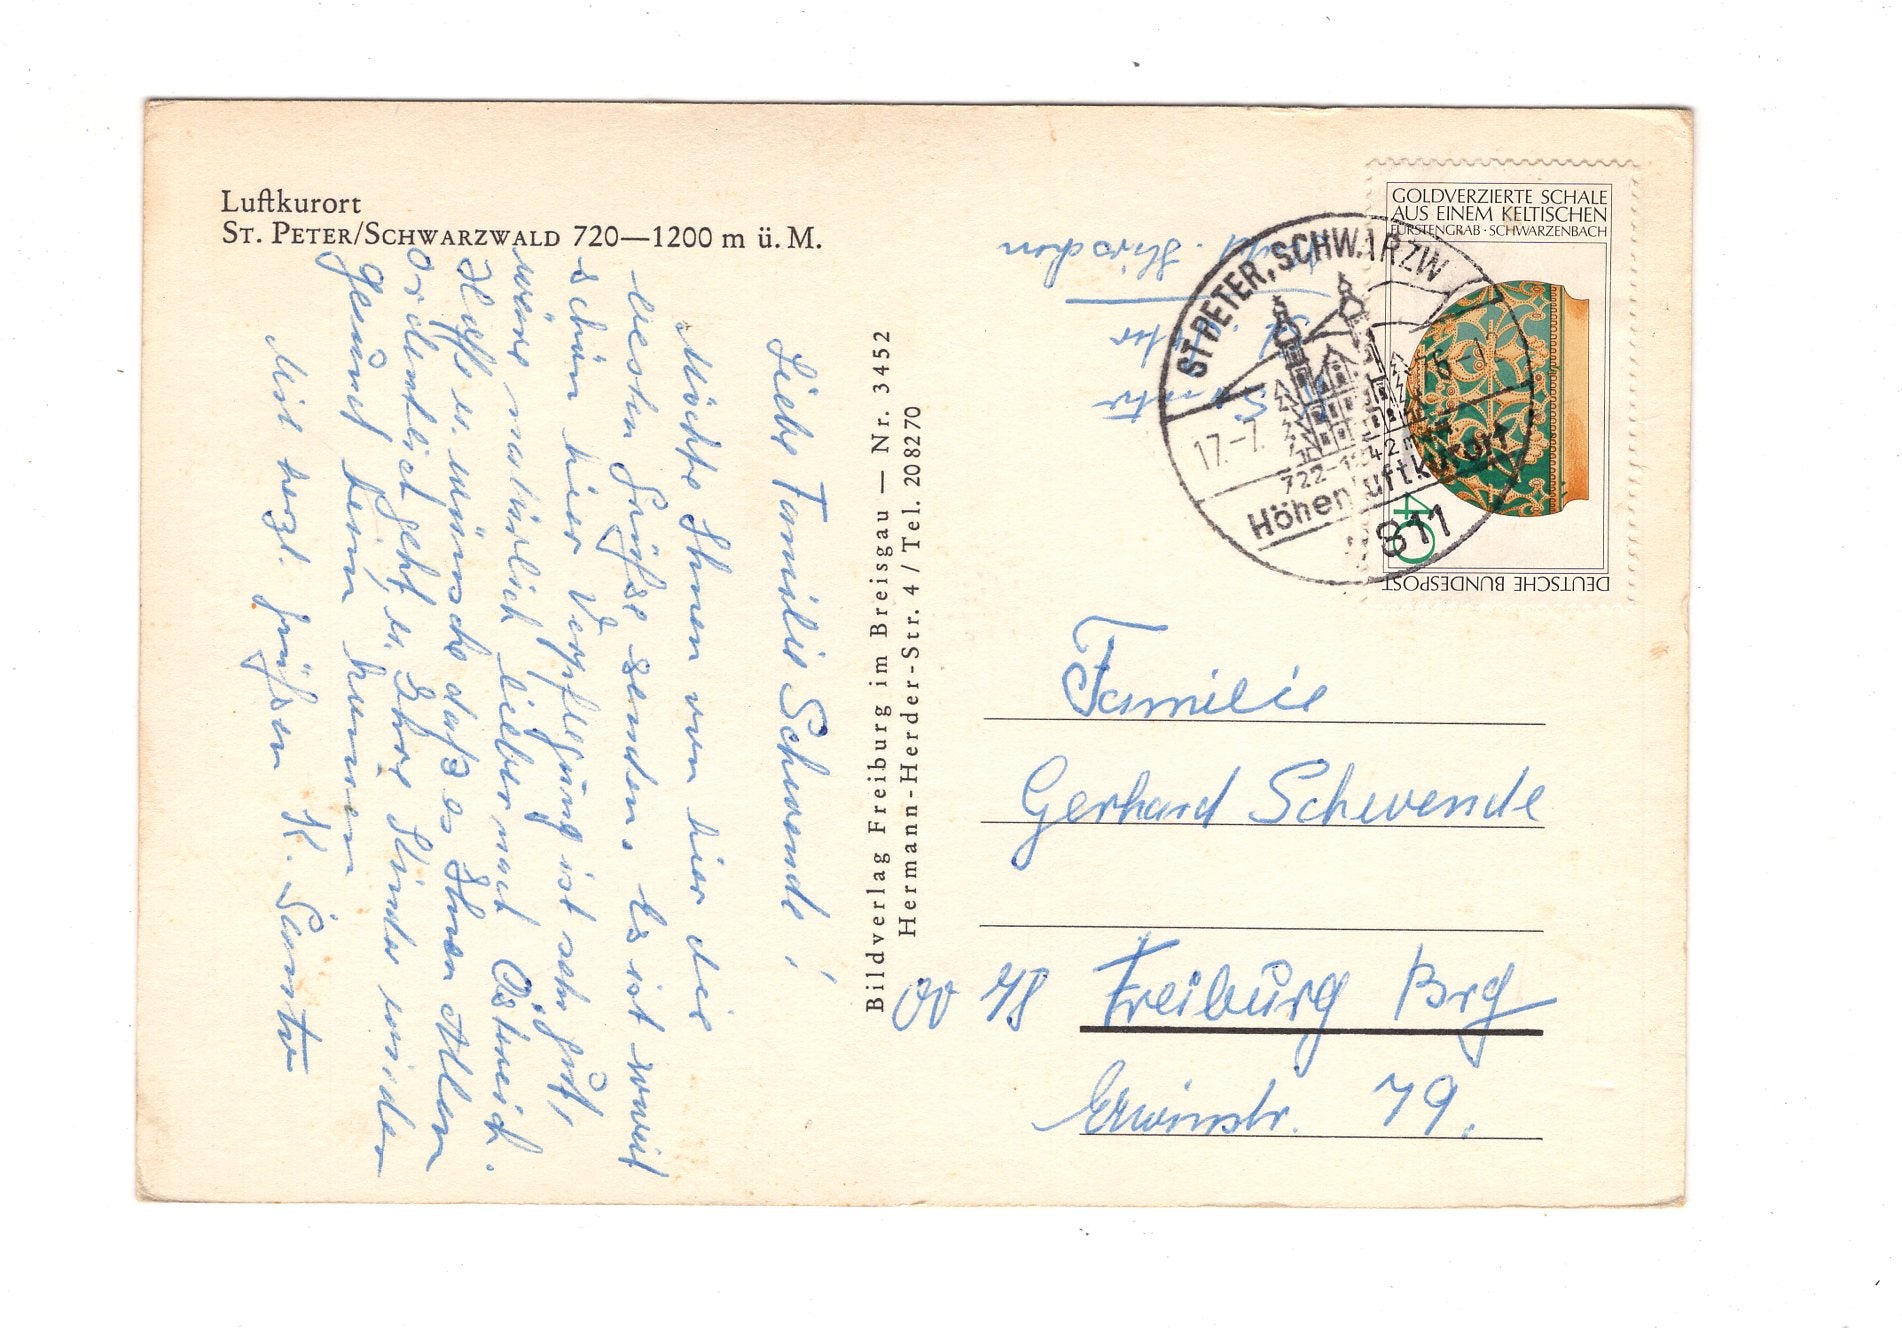 Luftkurort
ST. PETER/SCHWARZWALD 720—1200 m ü. M.
Liebe Familie Schwende!
Möchte Ihnen von hier die
besten Grüße senden. Es ist soweit
schön hier Verpflegung ist sehr gut,
wäre natürlich lieber nach Östreich.
Hoffe u. wünsche daß es Ihnen Allen
ordentlich geht, u. Ihre Kinder wieder
gesund heim kommen
Mit herzl. Grüßen K.
Bildverlag Freiburg im Breisgau — Nr. 3452
Hermann-Herder-Str. 4 / Tel. 208270
Hirschen
St. Peter
GOLDVERZIERTE SCHALE
AUS EINEM KELTISCHEN
FÜRSTENGRAB · SCHWARZENBACH
40
DEUTSCHE BUNDESPOST
ST PETER, SCHWARZW
17.-7. 76
722-1242m
Höhenluftkurort
7811
Familie
Gerhard Schwende
78 Freiburg Brg
Erwinstr. 79.